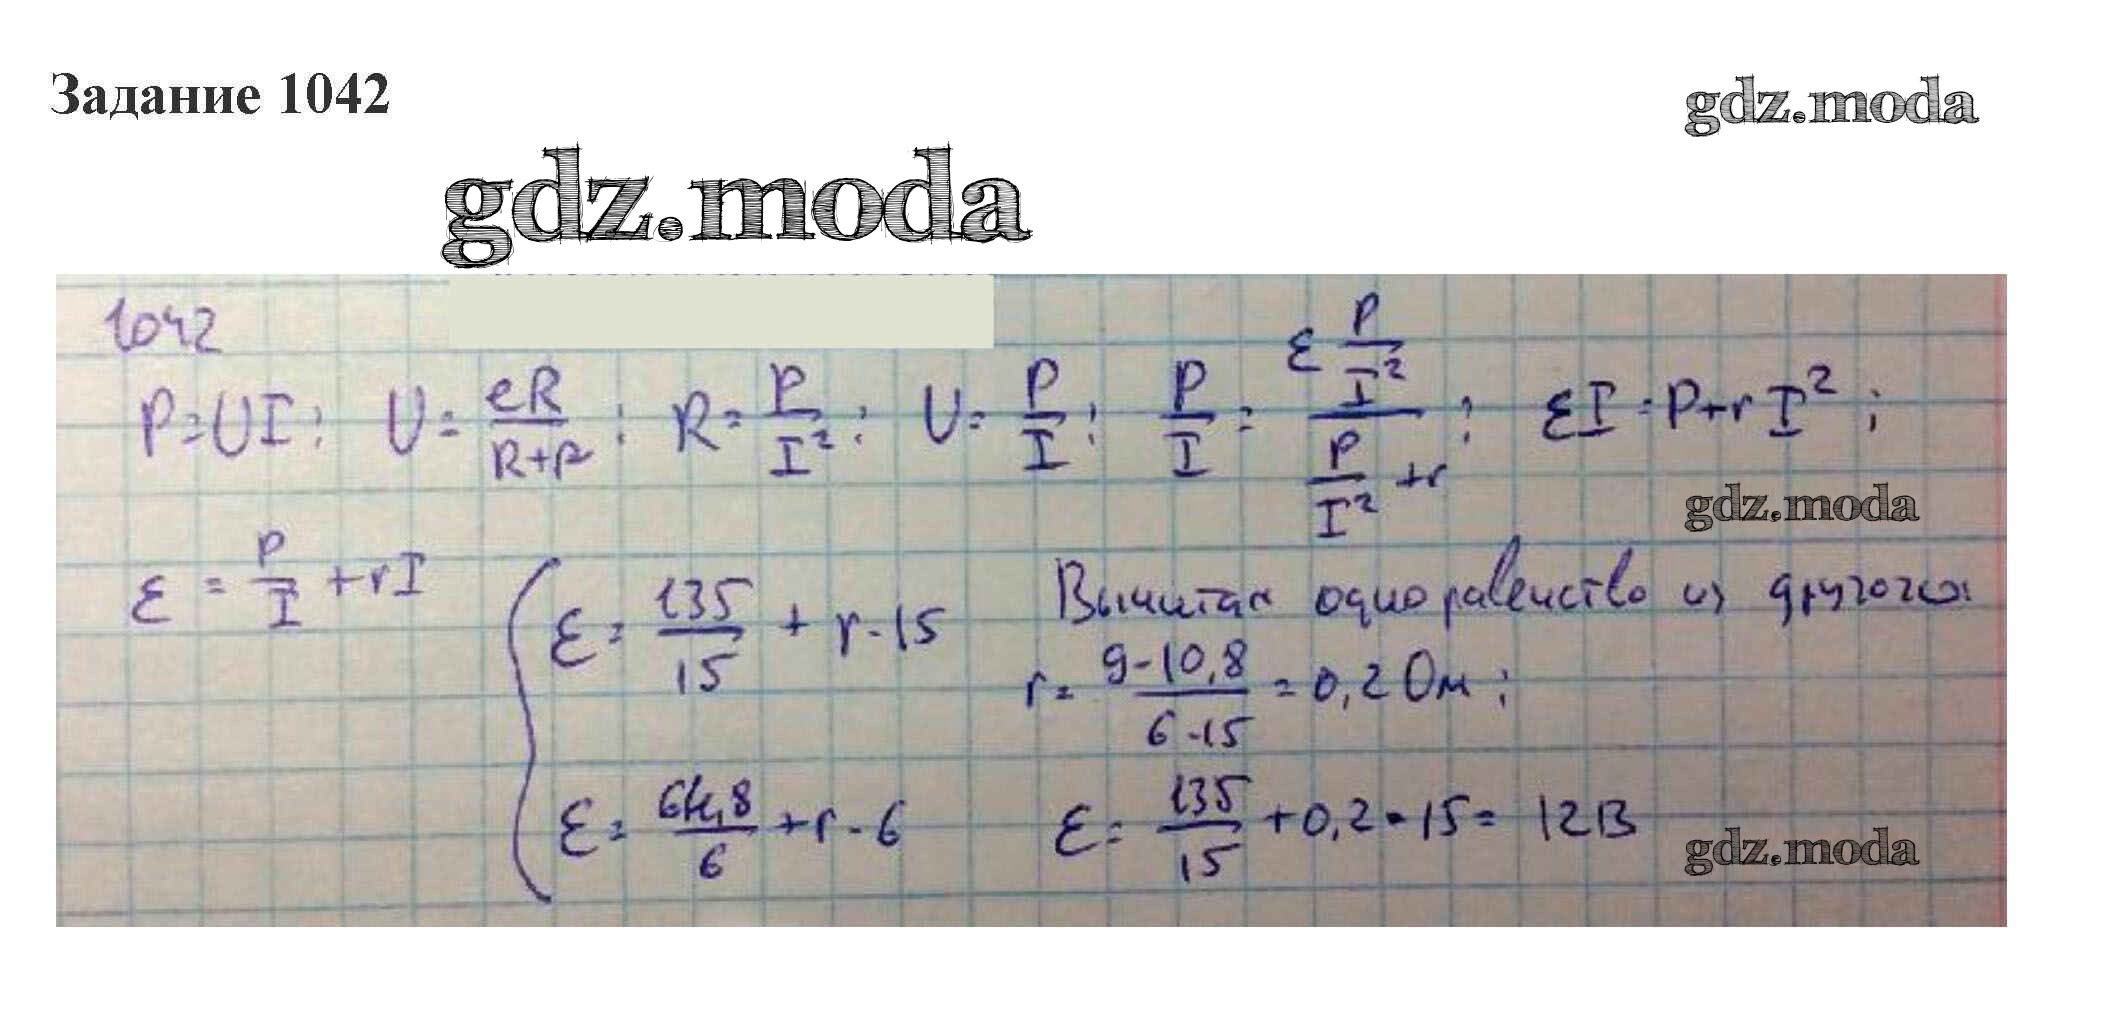 Задание 1042
gdz.moda
gdz.moda
1042
P=UI; U=eR/(R+r); R=P/I²; U=P/I; P/I=(ε P/I²)/(P/I²+r); εI=P+rI²;
gdz.moda
ε=P/I+rI
ε=135/15+r·15
Вычитая одно равенство из другого:
r=(9-10,8)/(6-15)=0,2 Ом;
ε=64,8/6+r·6
ε=135/15+0,2·15=12В
gdz.moda